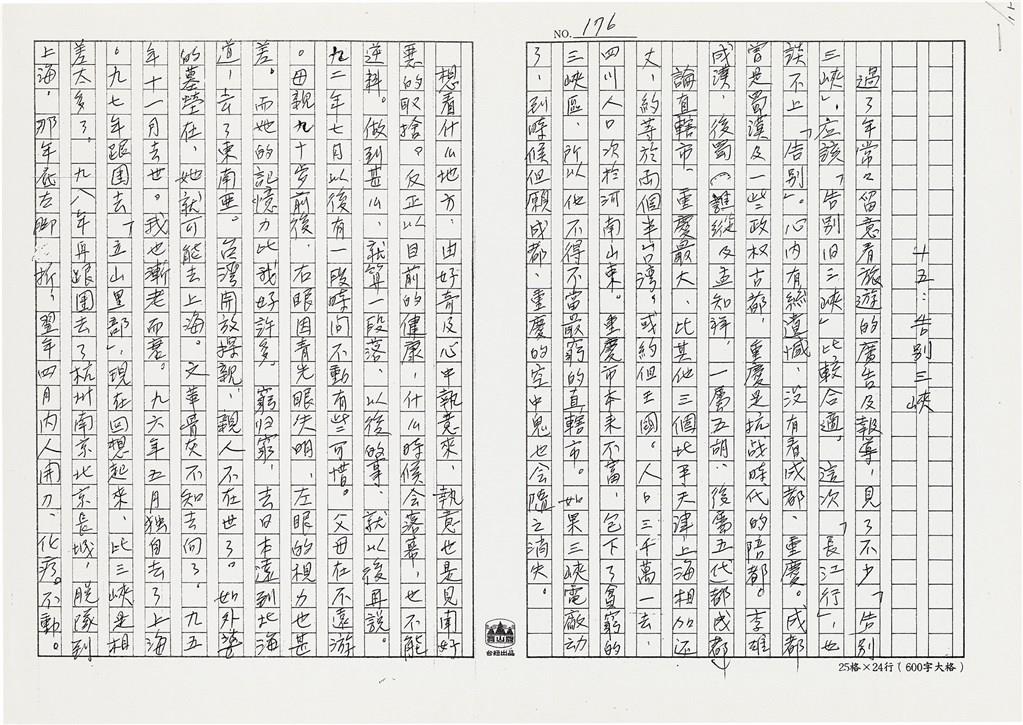 NO. 176
廿五：告別三峽
過了年常々留意看旅遊的廣告及報導，見了不少「告別
三峽」，应該「告別旧三峽」比較合適。這次「長江行」，也
談不上「告別」。心內有絲遺憾，沒有看成都、重慶。成都
曾是蜀漢及一些政权古都，重慶是抗战時代的陪都。李雄
成漢，後蜀（譙縱及孟知祥，一屬五胡、後屬五代都成都）
論直轄市，重慶最大，比其他三個北平天津上海相加还
大，約等於兩個半台灣。或約但王國。人口三千萬一去，
四川人口次於河南山東。重慶市本来不富，包下了貧窮的
三峽區，所以他不得不當最窮的直轄市。如果三峽電廠动
了，到時候但願成都、重慶的空中鬼也会隨之消失。
想看什么地方，由好奇及心中執意來，執意也是見闻好
惡的取捨。反正以目前的健康，什么時候会落幕，也不能
逆料。做到甚么，就算一段落，以後的事，就以後再說。
九二年七月以後有一段時间不動有些可惜。父母在不遠游
。母親九十岁前後，右眼因青光眼失明，左眼的視力也甚
差。而她的記憶力比我好許多。窮归窮，去日本遠到北海
道，去了東南亜。台灣開放探親，親人不在世了。如外婆
的墓塋在，她就可能去上海。之華骨灰不知去向了。九五
年十一月去世。我也漸老而衰。九六年五月独自去了上海
。九七年跟团去「立山黑部」，現在回想起來，比三峽是相
差太多了。九八年再跟团去了杭州南京北京長城，脱隊到
上海，那年底左脚折，翌年四月內人開刀、化疗。不動。
台紐出品
25格×24行（600字大格）